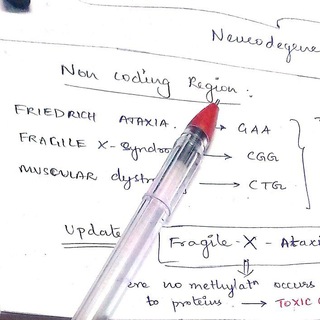 Neurodegene
Non Coding Region :
FRIEDRICH ATAXIA. → GAA
FRAGILE X-Syndro → CGG
MUSCULAR dyst → CTG
Update
Fragile-X-Ataxi
ere no methylatn occurs
to proteins. → TOXIC